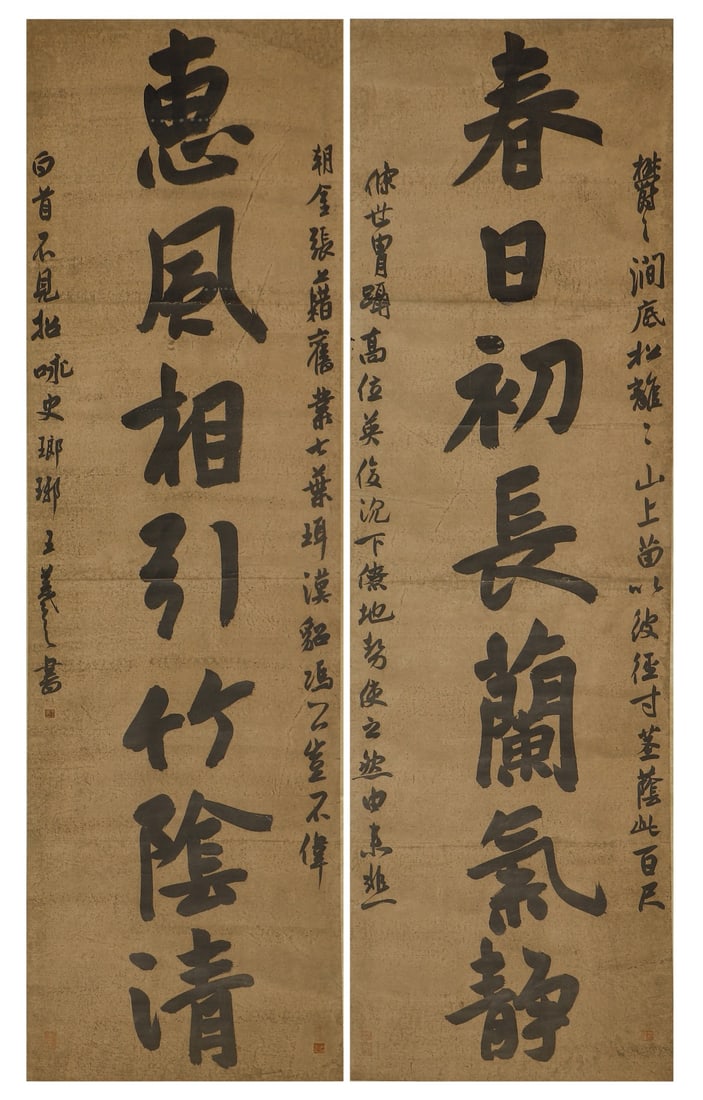 鬱〻澗底松離〻山上苗以彼徑寸莖蔭此百尺
春日初長蘭氣静
條世胄躡高位英俊沉下僚地勢使之然由來非一
朝金張藉舊業七葉珥漢貂馮公豈不偉
惠風相引竹陰清
白首不見招咏史瑯琊王羲之書